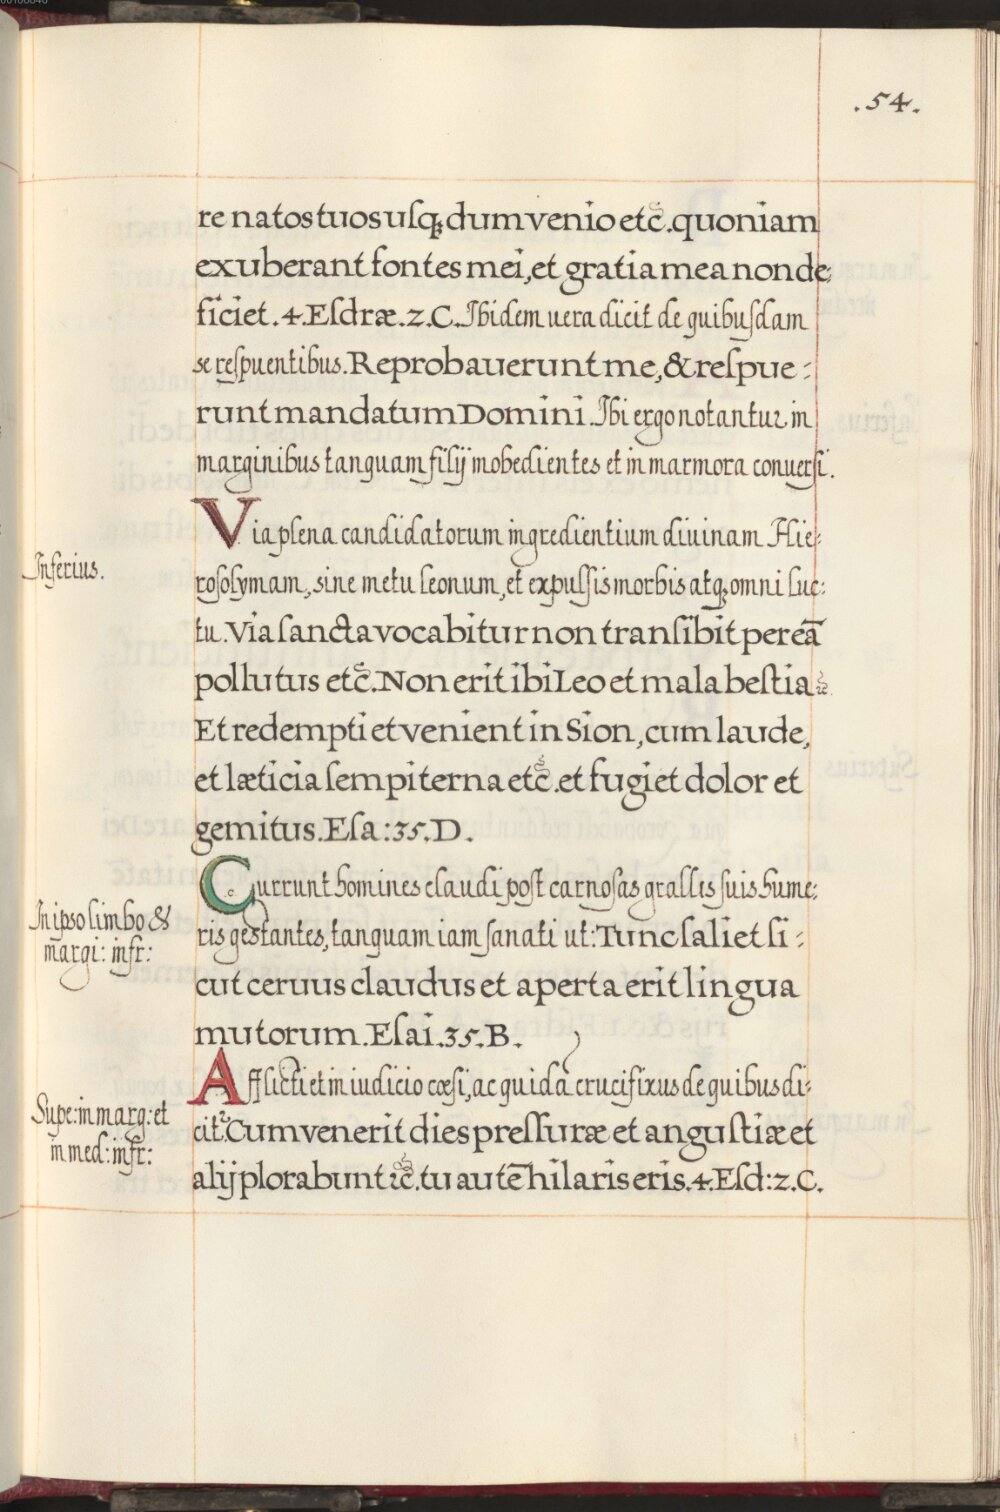 .54.
re natos tuos usq; dum venio etc̃. quoniam
exuberant fontes mei, et gratia mea non de:
ficiet. 4. Esdræ. 2. C. Ibidem uera dicit de quibusdam
se respuentibus. Reprobauerunt me, & respue:
runt mandatum Domini. Ibi ergo notantur in
marginibus tanquam filij inobedientes et in marmora conuersi.
Inferius.
Via plena candidatorum ingredientium diuinam Hie:
rosolymam, sine metu leonum, et expulsis morbis atq; omni luc:
tu. Via sancta vocabitur non transibit per eā
pollutus etc̃. Non erit ibi Leo et mala bestia
Et redempti et venient in Sion, cum laude,
et læticia sempiterna etc̃. et fugiet dolor et
gemitus. Esa: 35. D.
In ipso limbo &
margi: infr:
Currunt homines claudi post carnosas gralles suis hume:
ris gestantes, tanquam iam sanati ut: Tunc saliet si:
cut ceruus claudus et aperta erit lingua
mutorum. Esai. 35. B.
Supe: in marg: et
in med: infr:
Afflicti et in iudicio cœsi, ac quidā crucifixus de quibus di:
cit.r Cum venerit dies pressuræ et angustiæ et
alij plorabunt &c̃. tu autē hilaris eris. 4. Esd: 2. C.